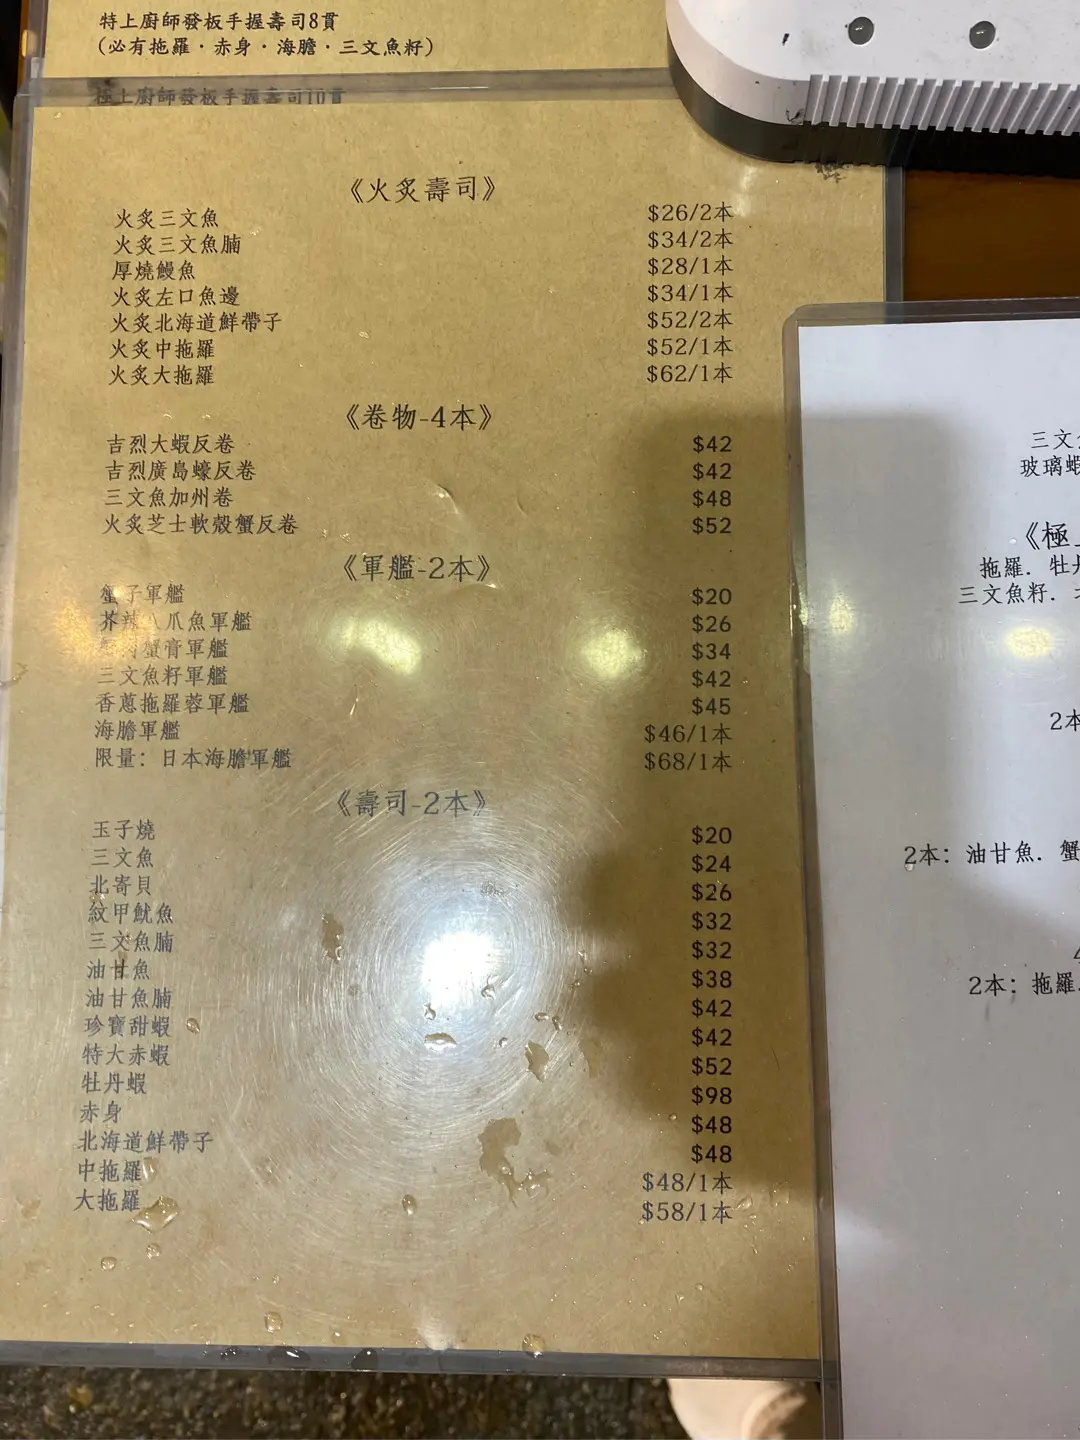 特上廚師發板手握壽司8貫
(必有拖羅·赤身·海膽·三文魚籽)
極上廚師發板手握壽司10貫
《火炙壽司》
火炙三文魚 $26/2本
火炙三文魚腩 $34/2本
厚燒鰻魚 $28/1本
火炙左口魚邊 $34/1本
火炙北海道鮮帶子 $52/2本
火炙中拖羅 $52/1本
火炙大拖羅 $62/1本
《卷物-4本》
吉烈大蝦反卷 $42
吉烈廣島蠔反卷 $42
三文魚加州卷 $48
火炙芝士軟殼蟹反卷 $52
《軍艦-2本》
蟹子軍艦 $20
芥辣八爪魚軍艦 $26
蟹肉蟹膏軍艦 $34
三文魚籽軍艦 $42
香蔥拖羅蓉軍艦 $45
海膽軍艦 $46/1本
限量：日本海膽軍艦 $68/1本
《壽司-2本》
玉子燒 $20
三文魚 $24
北寄貝 $26
紋甲魷魚 $32
三文魚腩 $32
油甘魚 $38
油甘魚腩 $42
珍寶甜蝦 $42
特大赤蝦 $52
牡丹蝦 $98
赤身 $48
北海道鮮帶子 $48
中拖羅 $48/1本
大拖羅 $58/1本
三文
玻璃蝦
《極
拖羅．牡丹
三文魚籽．
2本
2本：油甘魚．蟹
2本：拖羅